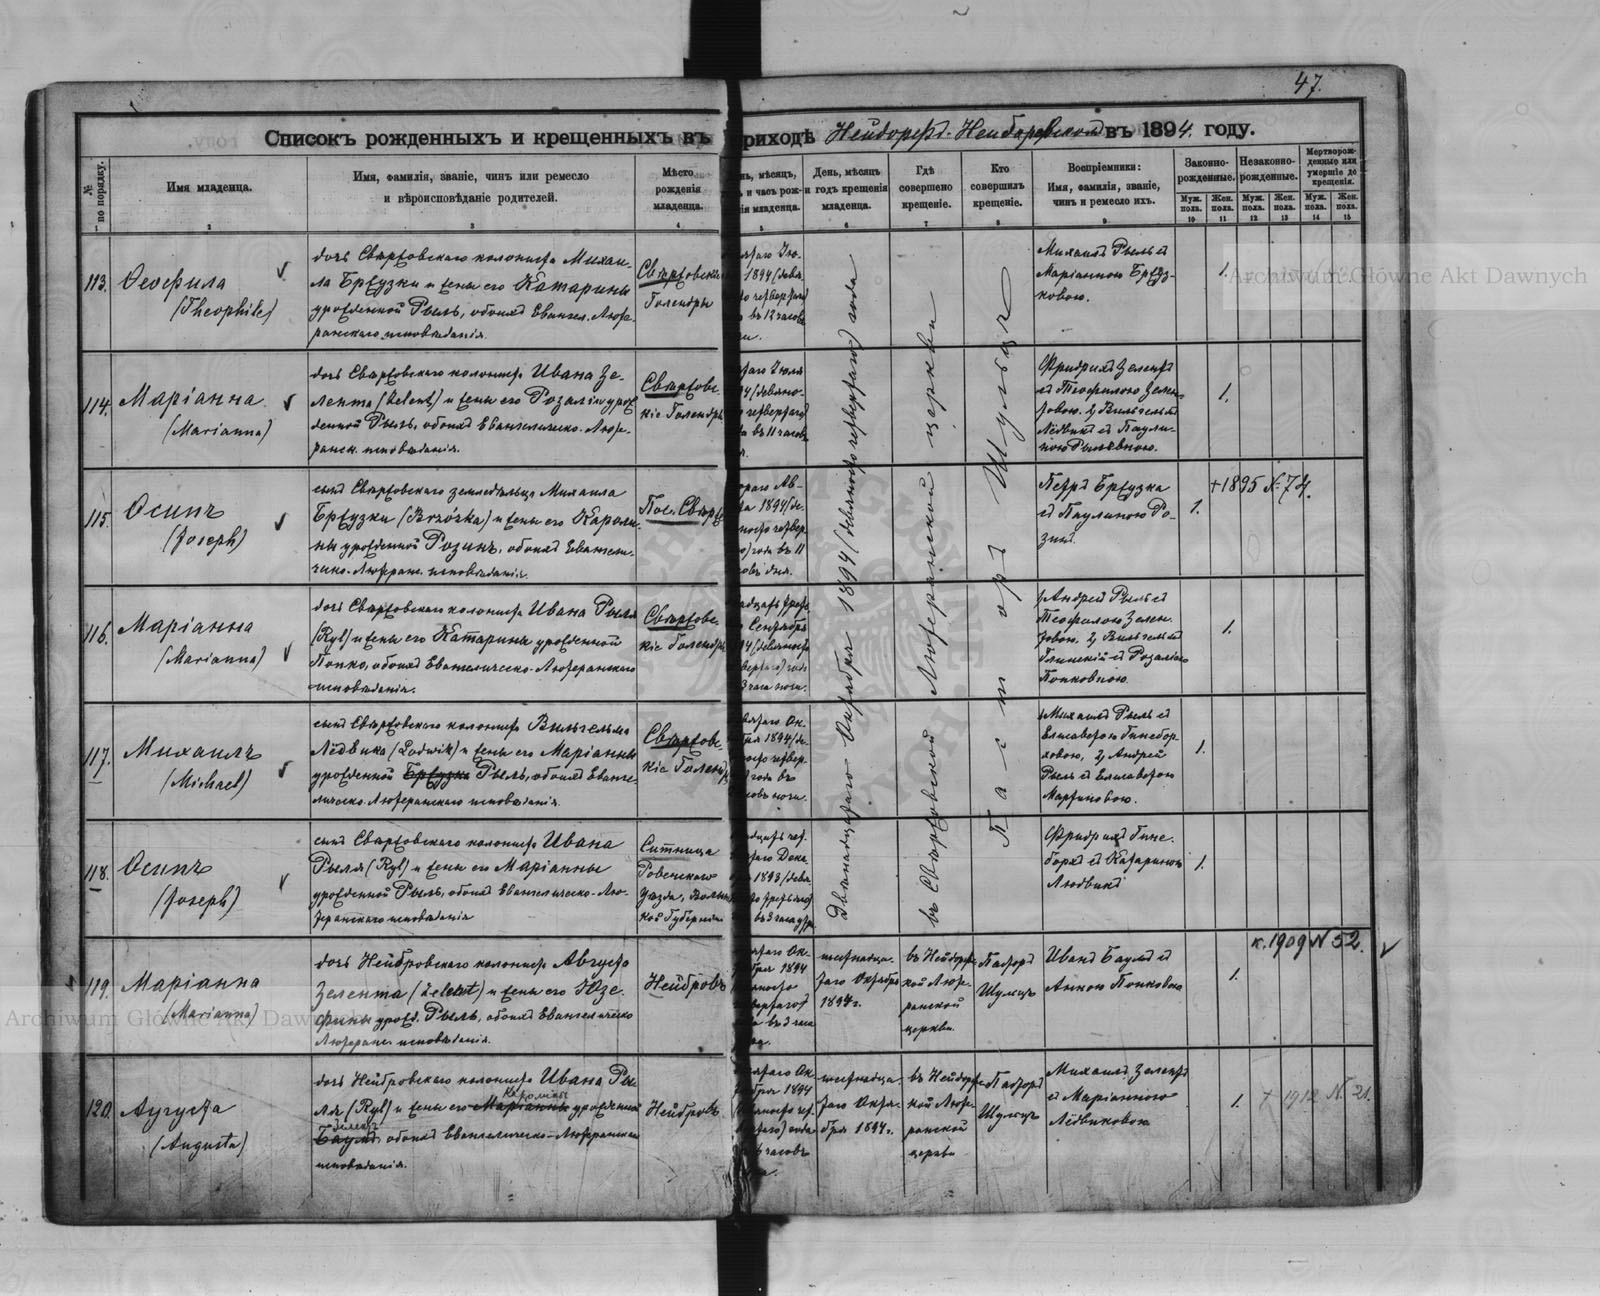 47.
Списокъ рожденныхъ и крещенныхъ въ приходѣ Нейдорфъ-Нейбровскомъ въ 1894. году.
№ по порядку.
Имя младенца.
Имя, фамилія, званіе, чинъ или ремесло
и вѣроисповѣданіе родителей.
Мѣсто
рожденія
младенца.
День, мѣсяцъ
и годъ крещенія
младенца.
Гдѣ
совершено
крещеніе.
Кто
совершилъ
крещеніе.
Воспріемники:
Имя, фамилія, званіе,
чинъ и ремесло ихъ.
Законно-
рожденные.
Незаконно-
рожденные.
Мертворож-
денные или
умершіе до
крещенія.
Муж. пола.
Жен. пола.
Муж. пола.
Жен. пола.
Муж. пола.
Жен. пола.
1 2 3 4 5 6 7 8 9 10 11 12 13 14 15
113.
Ѳеофила
(Theophile)
дочь Свѣржовскаго колониста Михаи-
ла Бржузки и жены его Катарины
урожденной Рыль, обоихъ Евангел. Люте-
ранскаго исповѣданія.
Свѣржовскіе
Голендры
1894 (девя
въ 12 часовъ
Михаилъ Рыль и
Маріанною Бржуз-
ковою.
1.
114.
Маріанна
(Marianna)
дочь Свѣржовскаго колониста Ивана Зе-
лента (Zelent) и жены его Розаліи урож
денной Рыль, обоихъ Евангелическо-Люте-
ранск. исповѣданія.
Свѣржовс-
кіе Голендры
въ 11 часовъ
Фридрихъ Зелентъ
и Теофилою Зелен-
товою. 2, Вильгельмъ
Лёдвикъ и Паули-
ною Рылёвною.
1.
115.
Осипъ
(Joseph)
сынъ Свѣржовскаго земледѣльца Михаила
Бржузки (Brzózka) и жены его Кароли-
ны урожденной Розинъ, обоихъ Евангели-
ческо-Лютеран. исповѣданія.
Пос. Свѣржъ
1894 (де-
года въ 11
Петръ Бржузка
и Паулиною Ро-
зинъ.
1.
+1895 № 74.
116.
Маріанна
(Marianna)
дочь Свѣржовскаго колониста Ивана Рыля
(Ryl) и жены его Катарины урожденной
Попко, обоихъ Евангелическо-Лютеранскаго
исповѣданія.
Свѣржовс-
кіе Голендры
Сентября
3 часа ночи.
1, Андрей Рыль и
Теофилою Зелен-
товою. 2, Вильгельмъ
Глинскій и Розаліею
Попковною.
1.
117.
Михаилъ
(Michael)
сынъ Свѣржовскаго колониста Вильгельма
Лёдвика (Ludwik) и жены его Маріанны
урожденной Бржузка Рыль, обоихъ Еванге-
лическо-Лютеранскаго исповѣданія.
Свѣржовс-
кіе Голендры
1894 (де-
1, Михаилъ Рыль и
Елисаветою Гинсбор-
ховою, 2, Андрей
Рыль и Елисаветою
Мартиновою.
1.
118.
Осипъ
(Joseph)
сынъ Свѣржовскаго колониста Ивана
Рыля (Ryl) и жены его Маріанны
урожденной Рыль, обоихъ Евангелическо-Лю-
теранскаго исповѣданія
Ситница
Ровенскаго
Уѣзда, Волынс
кой Губерніи
1893 (девя
въ 3 часа утра
Фридрихъ Гинс-
борхъ и Катариною
Людвикъ
1.
Двѣнадцатаго Октября 1894 (девяносто четвертаго) года
въ Свѣржовской Лютеранской церкви
Пасторъ Шульцъ
119.
Маріанна
(Marianna)
дочь Нейбровскаго колониста Августа
Зелента (Zelent) и жены его Юзе-
фины урожд. Рыль, обоихъ Евангелическо
Лютеранс. исповѣданія.
Нейбровъ
1894
въ 3 часа
шестнадца-
таго Октября
1894 г.
въ Нейдорфс-
кой Люте-
ранской
церкви.
Пасторъ
Шульцъ
Иванъ Баумъ и
Анною Попковою
1.
к. 1909 № 52.
120.
Аугуста
(Augusta)
дочь Нейбровскаго колониста Ивана Ры-
ля (Ryl) и жены его Маріанны Каролины урожденной
Баумъ Зелентъ, обоихъ Евангелическо-Лютеранскаго
исповѣданія.
Нейбровъ
1894
часовъ
шестнадца-
таго Октя-
бря 1894 г.
въ Нейдорфс-
кой Люте-
ранской
церкви
Пасторъ
Шульцъ
Михаилъ Зелентъ
и Маріанною
Лёдвиковою
1.
+ 1912 № 21.
Archiwum Główne Akt Dawnych
Archiwum Główne Akt Dawnych